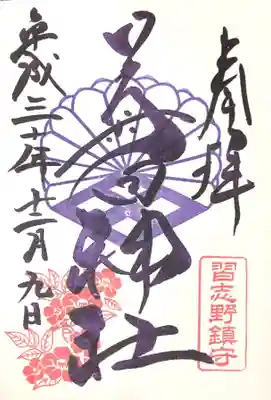 奉拝
神社
習志野鎮守
平成三十年十二月九日